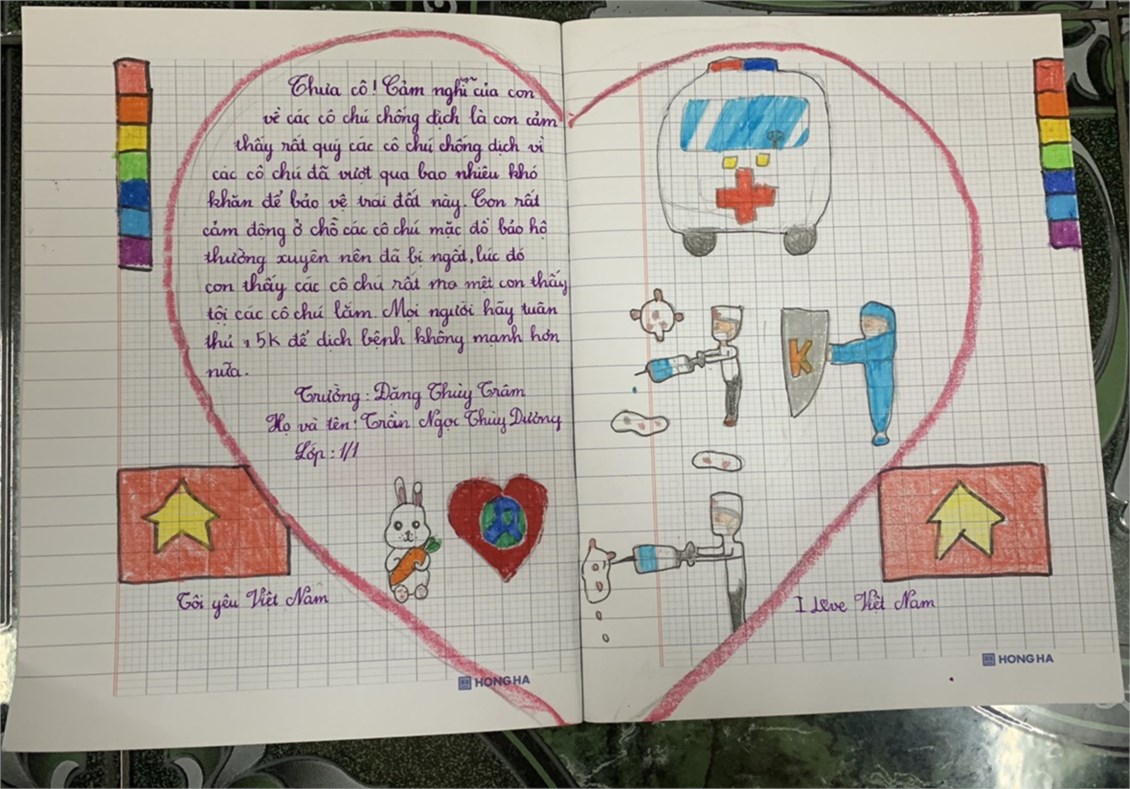 Thưa cô! Cảm nghĩ của con
về các cô chú chống dịch là con cảm
thấy rất quý các cô chú chống dịch vì
các cô chú đã vượt qua bao nhiêu khó
khăn để bảo vệ trái đất này. Con rất
cảm động ở chỗ các cô chú mặc đồ bảo hộ
thường xuyên nên đã bị ngất, lúc đó
con thấy các cô chú rất mo mệt con thấy
tội các cô chú lắm. Mọi người hãy tuân
thủ 5K để dịch bệnh không mạnh hơn
nữa.
Trường: Đặng Thùy Trâm
Họ và tên: Trần Ngọc Thùy Dương
Lớp: 1/1
Tôi yêu Việt Nam
HONG HA
K
I Love Việt Nam
HONG HA